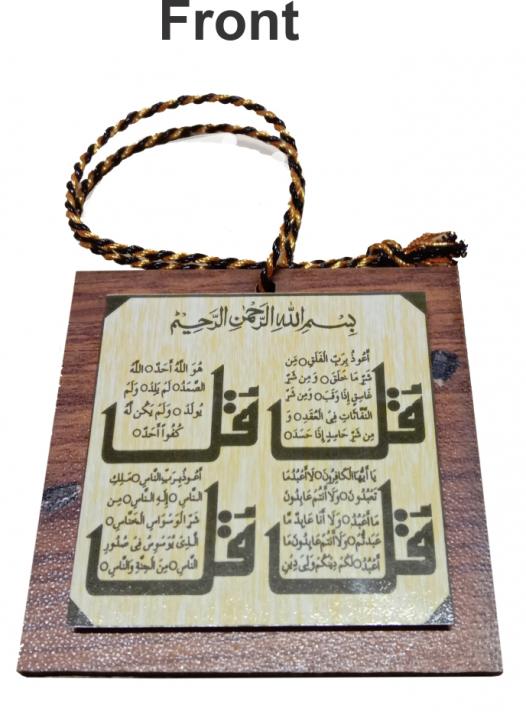 Front
بِسْمِ اللهِ الرَّحْمٰنِ الرَّحِيْمِ
قُلْ
أَعُوذُ بِرَبِّ الْفَلَقِ○ مِن
شَرِّ مَا خَلَقَ○ وَمِن شَرِّ
غَاسِقٍ إِذَا وَقَبَ○ وَمِن شَرِّ
النَّفَّاثَاتِ فِى الْعُقَدِ○ وَ
مِن شَرِّ حَاسِدٍ إِذَا حَسَدَ○
قُلْ
هُوَ اللَّهُ أَحَدٌ○ اللَّهُ
الصَّمَدُ○ لَمْ يَلِدْ○ وَلَمْ
يُولَدْ○ وَلَمْ يَكُن لَّهُ
كُفُوًا أَحَدٌ○
قُلْ
يَا أَيُّهَا الْكَافِرُونَ○ لَا أَعْبُدُ مَا
تَعْبُدُونَ○ وَلَا أَنتُمْ عَابِدُونَ
مَا أَعْبُدُ○ وَلَا أَنَا عَابِدٌ مَّا
عَبَدتُّمْ○ وَلَا أَنتُمْ عَابِدُونَ مَا
أَعْبُدُ○ لَكُمْ دِينُكُمْ وَلِىَ دِينِ
قُلْ
أَعُوذُ بِرَبِّ النَّاسِ○ مَلِكِ
النَّاسِ○ إِلَهِ النَّاسِ○ مِن
شَرِّ الْوَسْوَاسِ الْخَنَّاسِ○
الَّذِى يُوَسْوِسُ فِى صُدُورِ
النَّاسِ○ مِنَ الْجِنَّةِ وَالنَّاسِ○